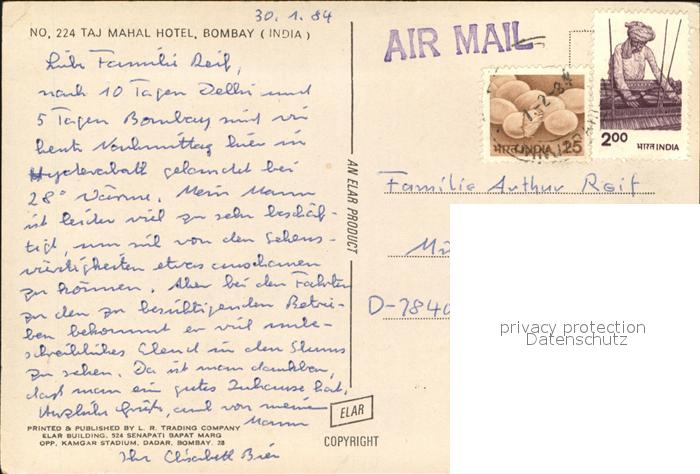 30.1.84
NO. 224 TAJ MAHAL HOTEL, BOMBAY (INDIA)
Liebe Familie Reif,
nach 10 Tagen Delhi und
5 Tagen Bombay sind wir
heute Nachmittag hier in
Hyderabath gelandet bei
28° Wärme. Mein Mann
ist leider viel zu sehr beschäf-
tigt, um sich von den Sehens-
würdigkeiten etwas anschauen
zu können. Aber bei den Fahrten
zu den zu besichtigenden Betrie-
ben bekommt er viel unbe-
schreibliches Elend in den Slums
zu sehen. Da ist man dankbar,
daß man ein gutes Zuhause hat.
Herzliche Grüße, auch von meinem
Mann
Ihre Elisabeth
PRINTED & PUBLISHED BY L. R. TRADING COMPANY
ELAR BUILDING, 524 SENAPATI BAPAT MARG
OPP. KAMGAR STADIUM, DADAR, BOMBAY. 28
AN ELAR PRODUCT
ELAR
COPYRIGHT
AIR MAIL
भारत INDIA 25
2.00
भारत INDIA
Familie Arthur Reif
D-7840
privacy protection
Datenschutz